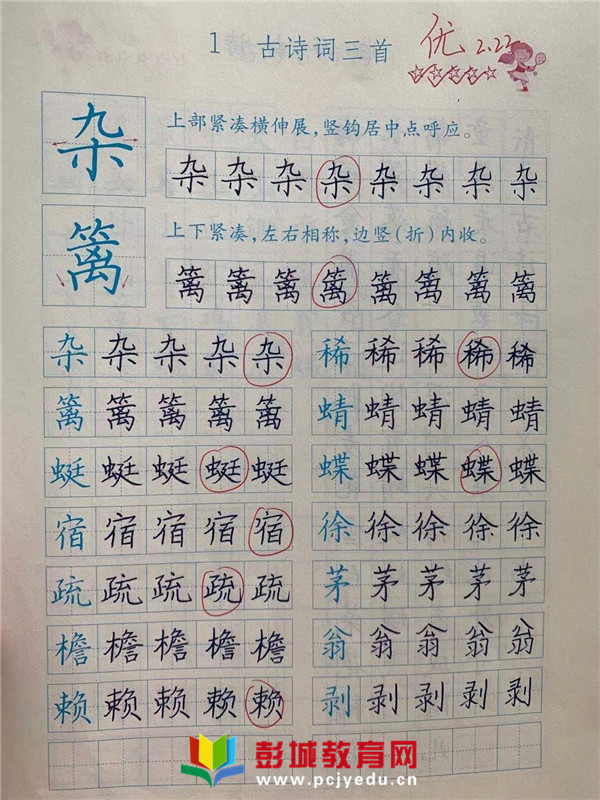 1 古诗词三首 优 2.22
杂 上部紧凑横伸展，竖钩居中点呼应。
杂杂杂杂杂杂杂杂
篱 上下紧凑，左右相称，边竖（折）内收。
篱篱篱篱篱篱篱篱
杂杂杂杂杂 稀稀稀稀稀
篱篱篱篱篱 蜻蜻蜻蜻蜻
蜓蜓蜓蜓蜓 蝶蝶蝶蝶蝶
宿宿宿宿宿 徐徐徐徐徐
疏疏疏疏疏 茅茅茅茅茅
檐檐檐檐檐 翁翁翁翁翁
赖赖赖赖赖 剥剥剥剥剥
彭城教育网
www.pcjyedu.cn